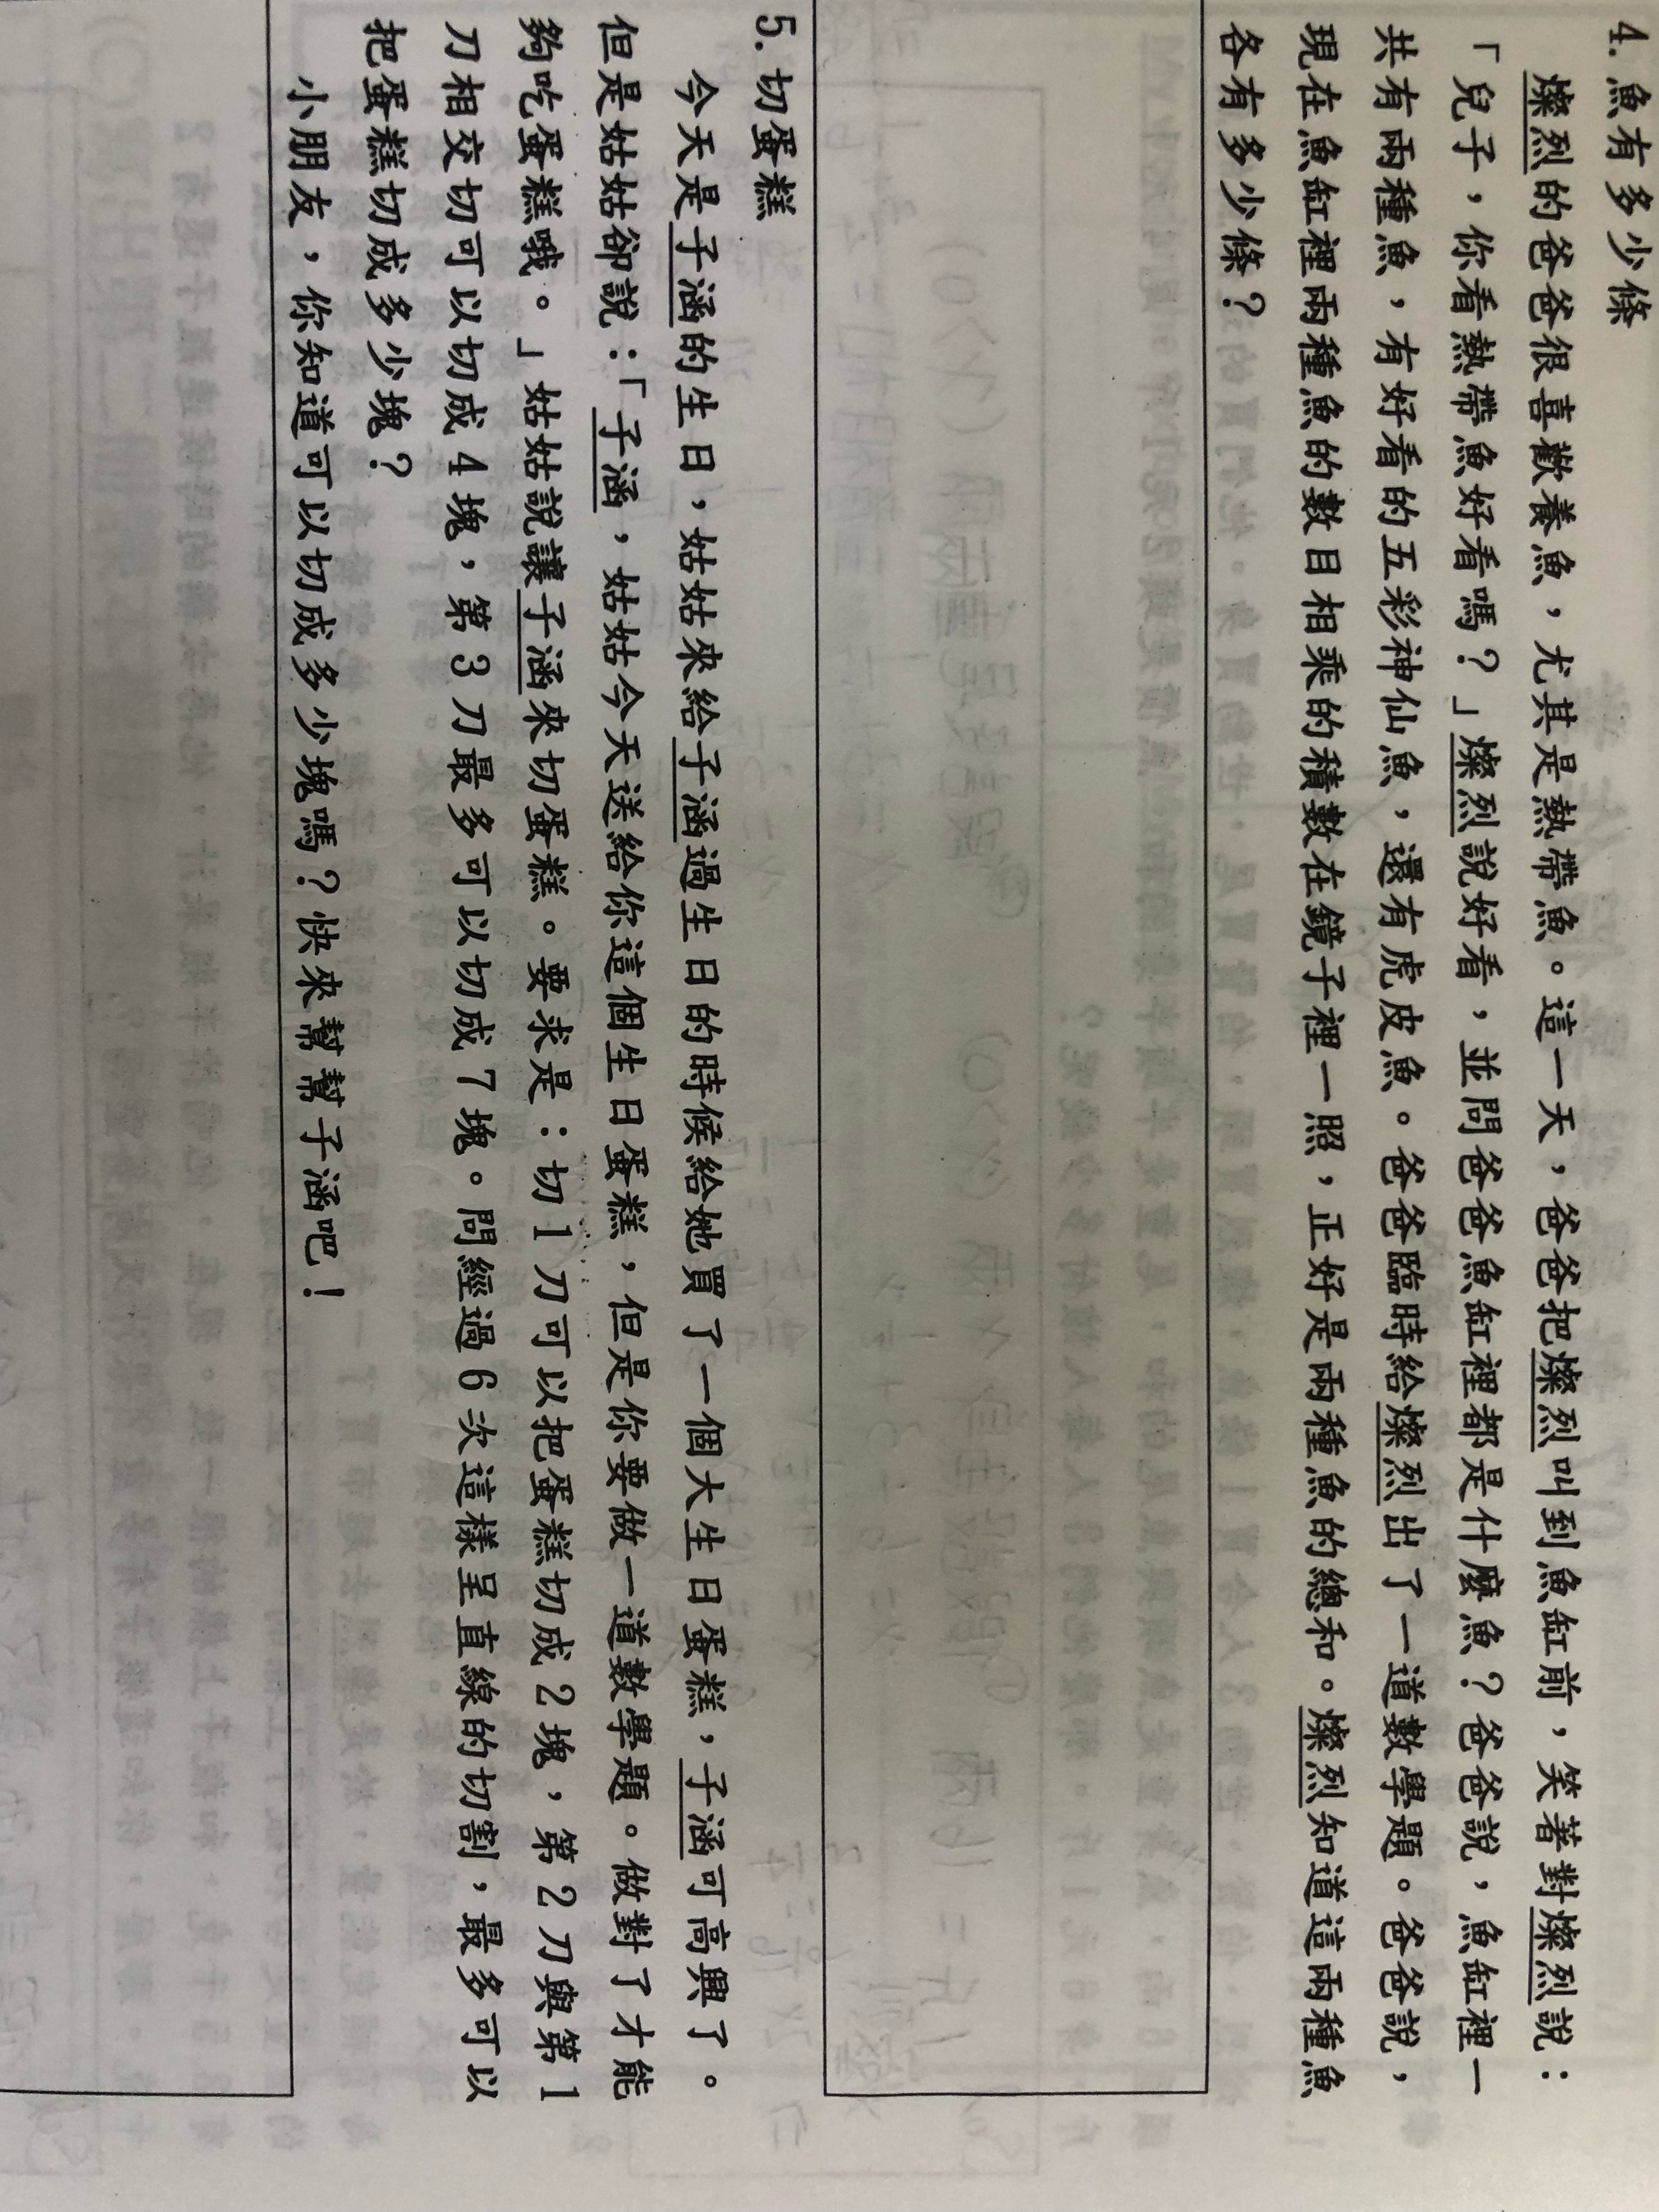 4.魚有多少條
燦烈的爸爸很喜歡養魚，尤其是熱帶魚。這一天，爸爸把燦烈叫到魚缸前，笑著對燦烈說：
「兒子，你看熱帶魚好看嗎？」燦烈說好看，並問爸爸魚缸裡都是什麼魚？爸爸說，魚缸裡一
共有兩種魚，有好看的五彩神仙魚，還有虎皮魚。爸爸臨時給燦烈出了一道數學題。爸爸說，
現在魚缸裡兩種魚的數目相乘的積數在鏡子裡一照，正好是兩種魚的總和。燦烈知道這兩種魚
各有多少條？
5.切蛋糕
今天是子涵的生日，姑姑來給子涵過生日的時候給她買了一個大生日蛋糕，子涵可高興了。
但是姑姑卻說：「子涵，姑姑今天送給你這個生日蛋糕，但是你要做一道數學題。做對了才能
夠吃蛋糕哦。」姑姑說讓子涵來切蛋糕。要求是：切1刀可以把蛋糕切成2塊，第2刀與第1
刀相交切可以切成4塊，第3刀最多可以切成7塊。問經過6次這樣呈直線的切割，最多可以
把蛋糕切成多少塊？
小朋友，你知道可以切成多少塊嗎？快來幫幫子涵吧！